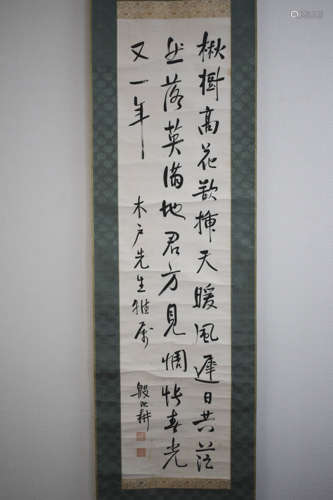 楸樹高花欲插天暖風遲日共茫
然落英滿地君方見惆悵春光
又一年
木戶先生雅屬
殷汝耕